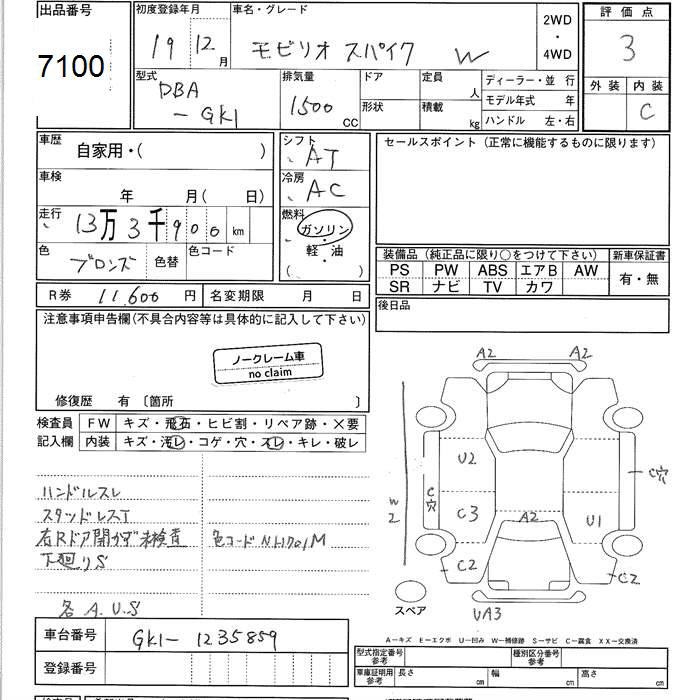 出品番号
7100
初度登録年月
19 12月
車名・グレード
モビリオ スパイク W
2WD
・
4WD
評価点
3
外装 内装
C
型式
DBA
-GK1
排気量
1500
CC
ドア
形状
定員
人
積載
kg
ディーラー・並 行
モデル年式 年
ハンドル 左・右
車歴
自家用・( )
車検
年 月( 日)
走行
13万3千900km
色
ブロンズ
色替
色コード
シフト
AT
冷房
AC
燃料
ガソリン
・
軽・油
( )
セールスポイント(正常に機能するものに限ります)
装備品(純正品に限り○をつけて下さい)
新車保証書
PS PW ABS エアB AW
SR ナビ TV カワ
有・無
R券 11,600 円
名変期限 月 日
後日品
注意事項申告欄(不具合内容等は具体的に記入して下さい)
ノークレーム車
no claim
修復歴 有〔箇所 〕
検査員
記入欄
FW キズ・飛石・ヒビ割・リペア跡・×要
内装 キズ・汚レ・コゲ・穴・スレ・キレ・破レ
ハンドルスレ
スタッドレスT
右Rドア開かず未検査
色コードNH701M
下廻りS
各A.U.S
A2 A2
U2
C穴
C穴
W2
C3
A2
U1
C2
C2
UA3
スペア
車台番号 GK1-1235859
登録番号
A-キズ E-エクボ U-凹み W-補修跡 S-サビ C-腐食 XX-交換済
型式指定番号
参考
種別区分番号
参考
車庫証明用
参考
長さ cm 幅 cm 高さ cm